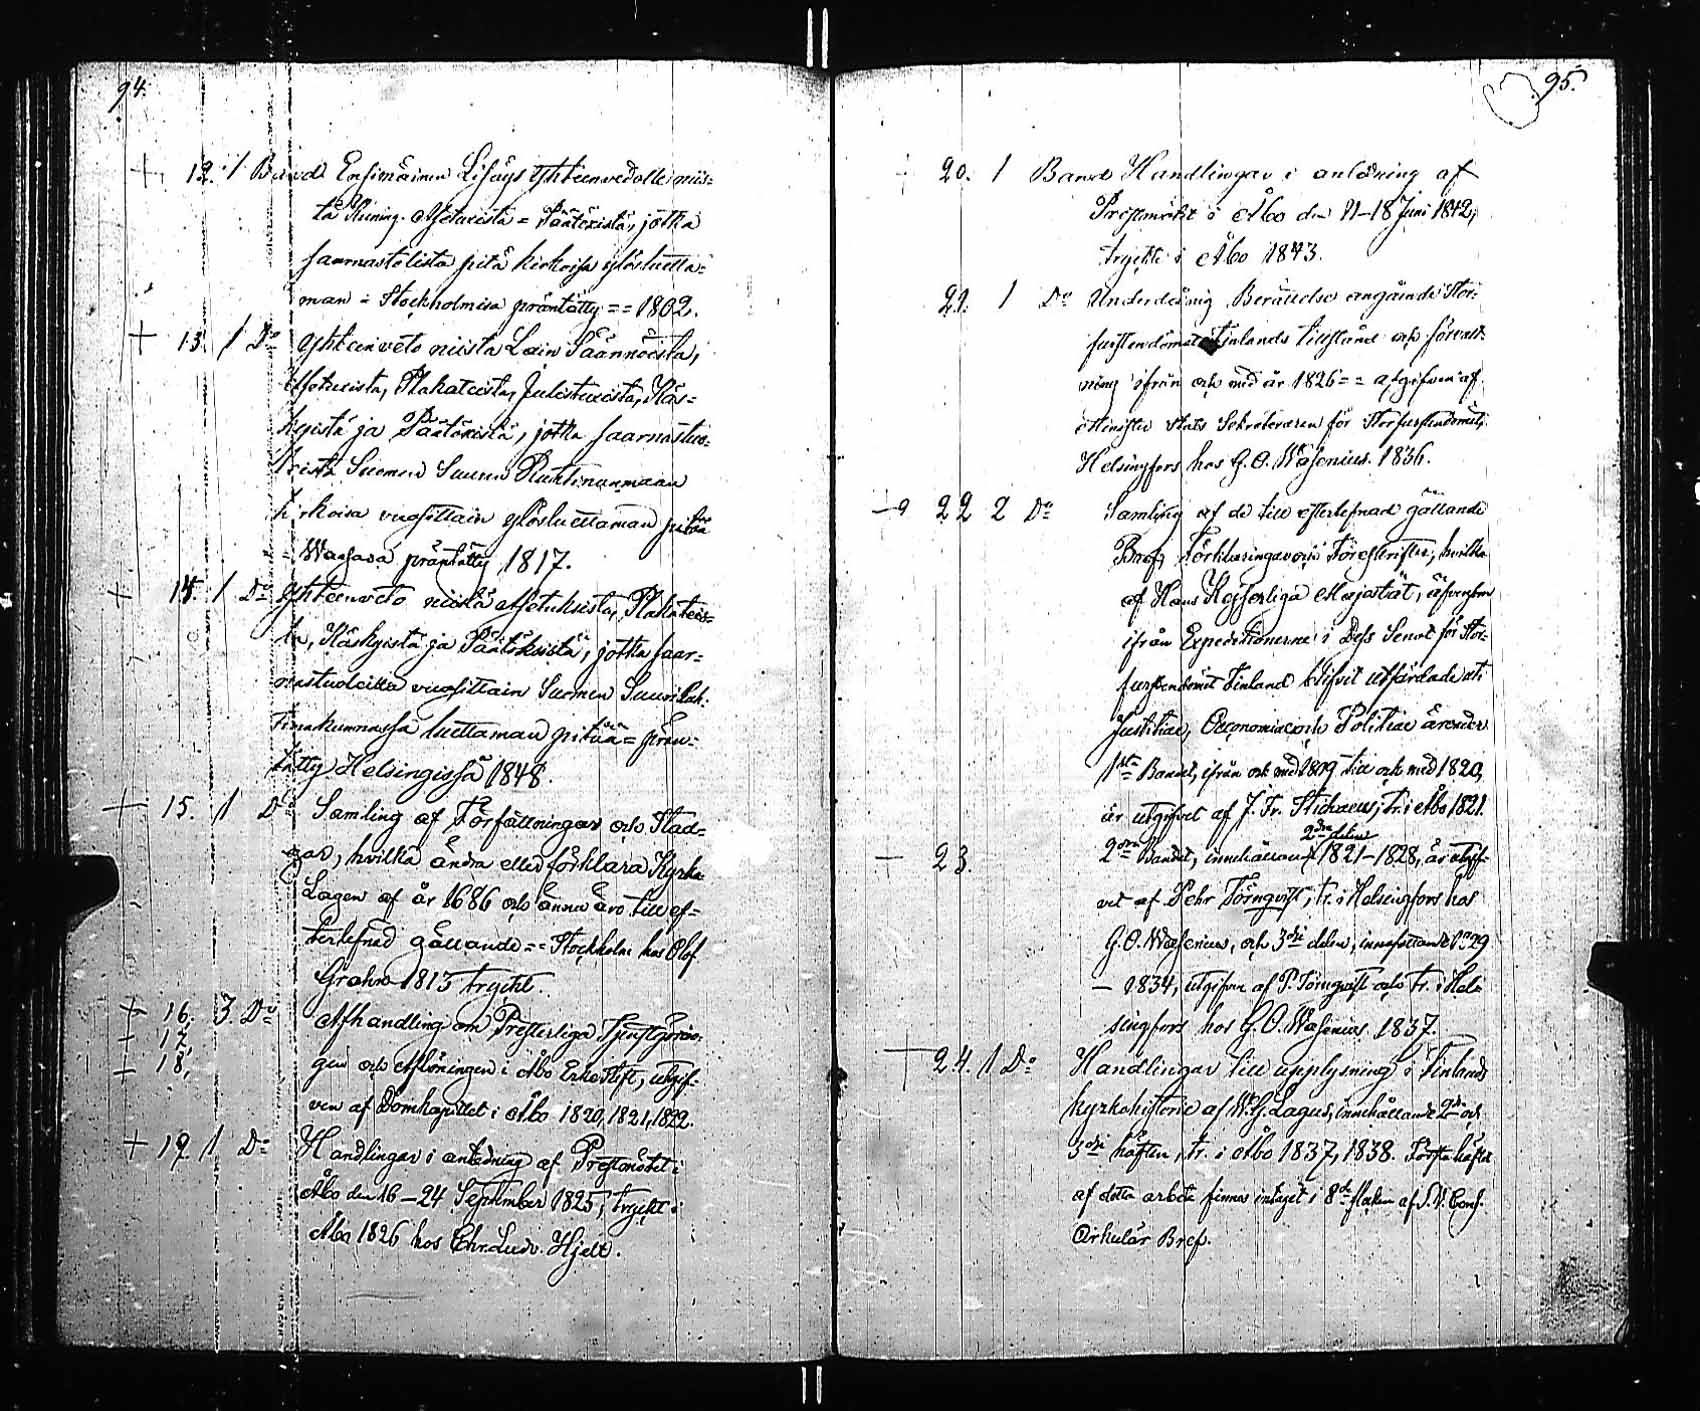 94.
+ 12. 1 Band Ensimäinen Lisäys Yhteenvedolle niis=
tä Kuning. Asetuxista = Päätöxistä, jotka
saarnastolista pitä kirkoisa ylösluetta=
man = Stockholmisa präntätty == 1802.
+ 13. 1 Do Yhteenveto niistä Lain Säännöista,
Asetuxista, Plakateista, Julistuxista, Käs=
kyistä ja Päätöxistä, jotka saarnastuo=
lista Suomen Suuren Ruhtinanmaan
kirkoisa vuosittain ylösluettaman pitää
= Waasasa präntätty 1817.
+ 14. 1 Do Yhteenveto niistä Asetuksista, Plakateis=
ta, Käskyistä ja Päätöksistä, jotka saar=
nastuoleilta vuosittain Suomen Suuriruh=
tinakunnassa luettaman pitää = prän=
tätty Helsingissä 1848.
+ 15. 1 Do Samling af Författningar och Stad=
gar, hvilka ändra eller förklara Kyrko
Lagen af år 1686 och ännu äro till ef=
terlefnad gällande == Stockholm hos Olof
Grahn 1813 tryckt.
+ 16. 3. Do Afhandling om Presterliga Tjenstgörin=
+ 17,
+ 18, gen och Aflöningen i Åbo Erke Stift, utgif=
ven af Domkapitlet i Åbo 1820, 1821, 1822.
+ 19. 1 Do Handlingar i anledning af Prestmötet i
Åbo den 16–24 September 1825, tryckt i
Åbo 1826 hos Chr. Ludv. Hjelt.
95.
20. 1 Band Handlingar i anledning af
Prestmötet i Åbo den 11–18 Juni 1842,
tryckte i Åbo 1843.
21. 1 Do Underdånig Berättelse angående Stor=
furstendömet Finlands tillstånd och förvalt=
ning ifrån och med år 1826 == afgifven af
Minister Stats Sekreteraren för Storfurstendömet,
Helsingfors hos G. O. Wasenius. 1836.
22 2 Do Samling af de till efterlefnad gällande
Bref, Förklaringar och Föreskrifter, hvilka
af Hans Kejserliga Majestät, äfvensom
ifrån Expeditionerne i Dess Senat för Stor=
furstendömet Finland blifvit utfärdade uti
Justitiae, Oeconomiae och Politiae ärender
1sta Bandet, ifrån och med 1809 till och med 1820,
är utgifvet af J. Fr. Stichaeus, tr. i Åbo 1821.
2dra delen
– 23. 2dra Bandet, innehållande 1821–1828, är utgif=
vet af Pehr Törnqvist, tr. i Helsingfors hos
G. O. Wasenius, och 3dje delen, innefattande 1829
– 1834, utgifven af P. Törnqvist och tr. i Hel=
singfors hos G. O. Wasenius 1837.
+ 24. 1 Do Handlingar till upplysning i Finlands
kyrkohistorie af W. G. Lagus, innehållande 2dra och
3dje häften, tr. i Åbo 1837, 1838. Första häftet
af detta arbete finnes intaget i 8de flocken af D. V. Cons.
Cirkulär Bref.